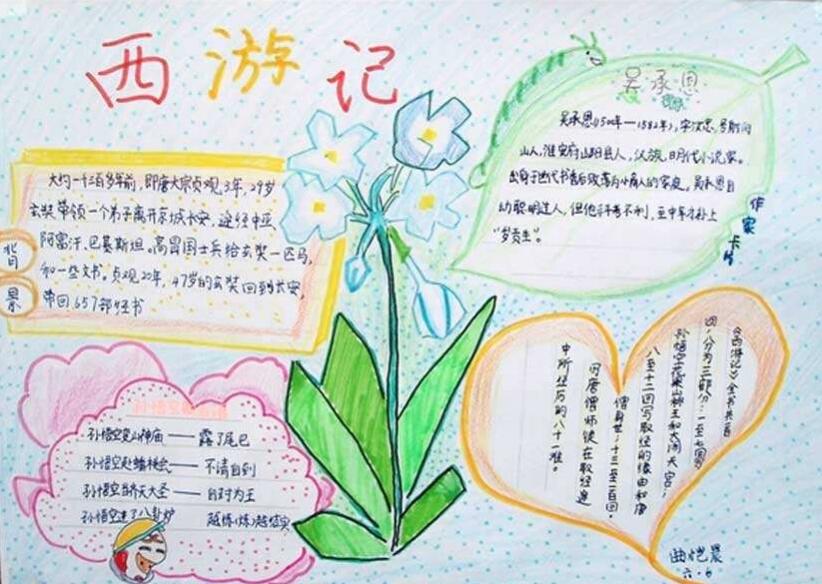 西游记
背景
大约一千三百多年前，即唐太宗贞观3年，29岁
玄奘带领一个弟子离开京城长安，途经中亚、
阿富汗、巴基斯坦。高昌国士兵给玄奘一匹马，
和一些文书。贞观20年，47岁的玄奘回到长安，
带回657部经书
吴承恩
吴承恩(1500年—1582年)，字汝忠，号射阳
山人，淮安府山阳县人，汉族，明代小说家。
出身于世代书香后败落为小商人的家庭。吴承恩自
幼聪明过人，但他科考不利，至中年才补上
“岁贡生”。
作家卡片
孙悟空变山神庙——露了尾巴
孙悟空赴蟠桃会——不请自到
孙悟空齐天大圣——自封为王
孙悟空进了八卦炉 越炼(炼)越结实
《西游记》全书共百
回，分为三部分：一至七写
孙悟空花果山称王和大闹天宫；
八至十二回写取经的缘由和唐
僧身世；十三至一百回，
写唐僧师徒在取经途
中所经历的八十一难。
曲恺晨
六·6